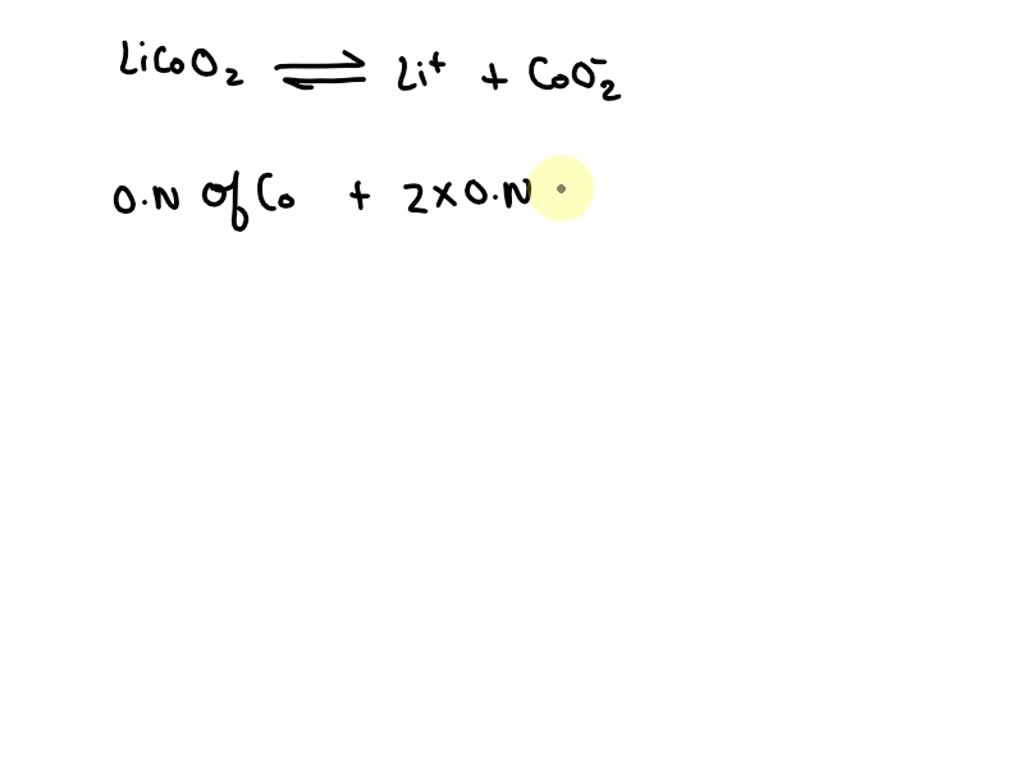 LiCoO₂ ⇌ Li⁺ + CoO₂⁻
O.N of Co + 2×O.N